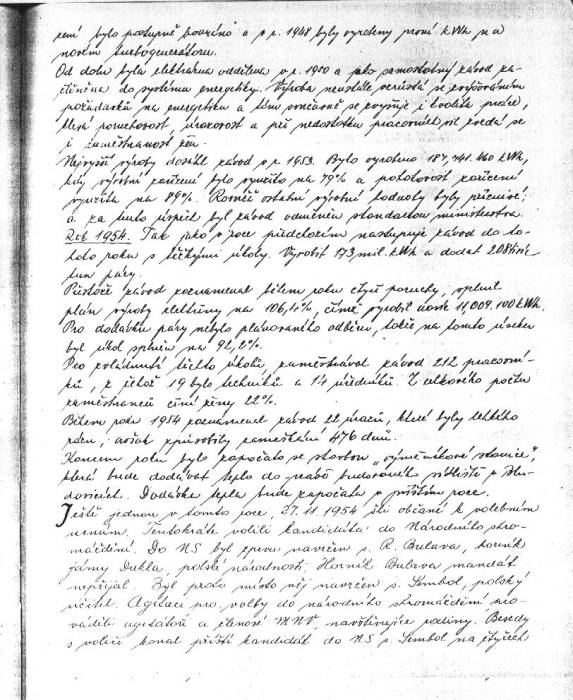 zení bylo postupně bouráno a v r. 1948 byly vyrobeny první kWh na
novém turbogenerátoru.
Od dolu byla elektrárna oddělena v r. 1950 a jako samostatný závod za-
členěna do systému energetiky. Výroba neustále vzrůstá se zvyšováním
požadavků na energetiku a tím současně se zvyšuje i kvalita práce,
klesá poruchovost, úrazovost a při nedostatku pracovních sil zvedá se
i zaměstnanost žen.
Nejvyšší výroby dosáhl závod v r. 1953. Bylo vyrobeno 187,441.460 kWh,
kdy výrobní zařízení bylo využito na 79% a pohotovost zařízení
využita na 89%. Rovněž ostatní výrobní hodnoty byly příznivé;
a za tento úspěch byl závod odměněn standartou ministerstva.
Rok 1954. Tak jako v roce předešlém nastupuje závod do to-
hoto roku s těžkými úkoly. Vyrobit 173 mil. kWh a dodat 208 tisíc
tun páry.
Přestože závod zaznamenal během roku čtyři poruchy, splnil
plán výroby elektřiny na 106,4%, čímž vyrobil navíc 11,009.100 kWh.
Pro dodávku páry nebylo plánovaného odběru, takže na tomto úseku
byl úkol splněn na 92,2%.
Pro zvládnutí těchto úkolů, zaměstnával závod 212 pracovní-
ků, z čehož 19 bylo techniků a 14 úředníků. Z celkového počtu
zaměstnanců činí ženy 22%.
Během roku 1954 zaznamenal závod 22 úrazů, které byly lehkého
rázu, avšak způsobily zameškání 476 dnů.
Koncem roku bylo započato se stavbou "výměníkové stanice",
která bude dodávat teplo do právě budovaného sídliště v
. Dodávka tepla bude započata v příštím roce.
Ještě jednou v tomto roce, 27. 11. 1954 šli občané k volebním
urnám. Tentokráte volili kandidáta do Národního shro-
máždění. Do NS byl zprvu navržen s. R. Bulava, horník
jámy Dukla, polské národnosti. Horník Bulava mandát
nepřijal. Byl proto místo něj navržen s. Sembol, polský
učitel. Agitaci pro volby do národního shromáždění pro-
váděli agitátoři a členové MNV, navštěvujíce rodiny. Besedy
s voliči konal příští kandidát do NS s. Sembol na čtyřech